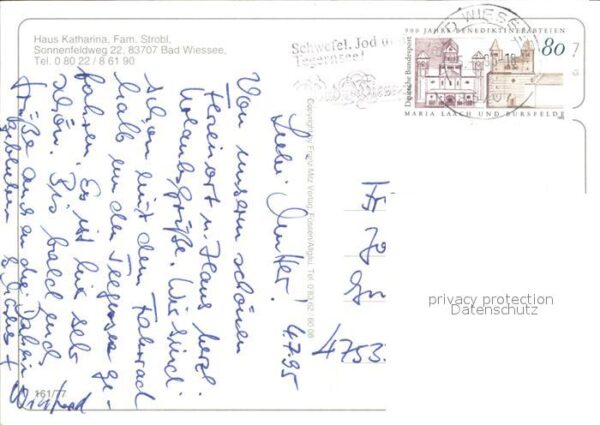 Haus Katharina, Fam. Strobl,
Sonnenfeldweg 22, 83707 Bad Wiessee,
Tel. 0 80 22 / 8 61 90
Schwefel, Jod
Tegernsee!
900 JAHRE BENEDIKTINERABTEIEN
80
Deutsche Bundespost
MARIA LAACH UND BURSFELDE
Copyright by Franz Milz Verlag, Füssen/Allgäu, Tel. 0 83 62 / 60 06
4.7.95
Liebe Mutter!
Von unserem schönen
Ferienort u. Haus herzl.
Urlaubsgrüße. Wir sind
schon mit dem Fahrrad
halb um den Tegernsee ge-
fahren. Es ist hier sehr
schön. Bis bald und
Grüße auch an die Daheim
gebliebenen
Winfried
4753
privacy protection
Datenschutz
161/77